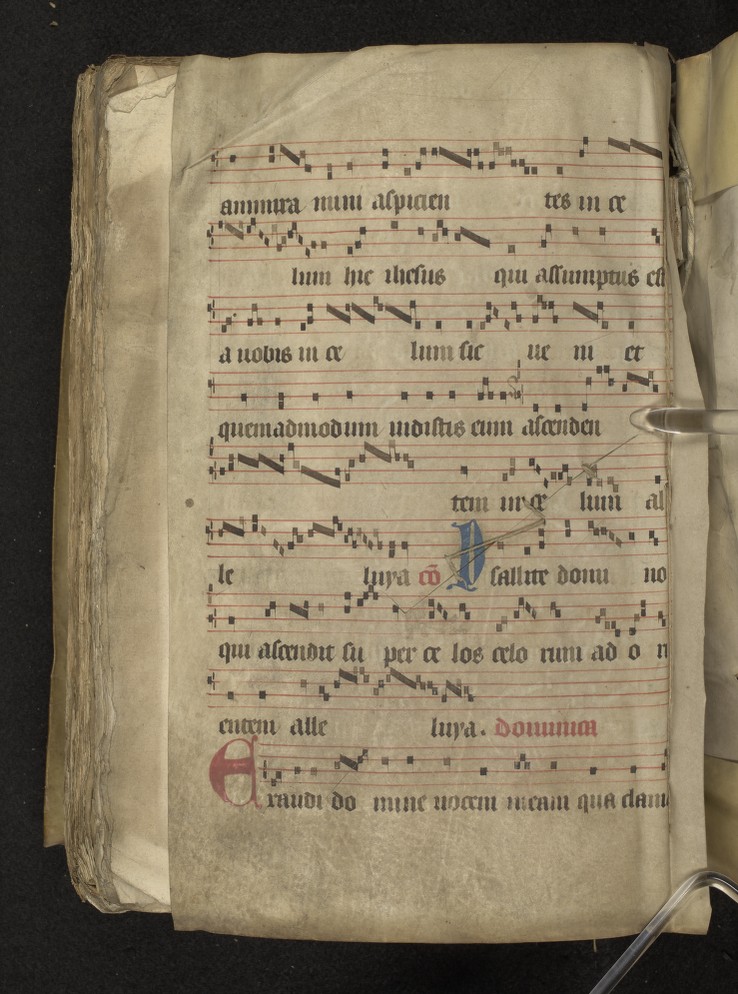 ammira mini aspicien tes in ce
lum hic ihesus qui assumptus est
a uobis in ce lum sic ue ni et
quemadmodum uidistis eum ascenden
tem in ce lum al
le luya cō Psallite domi no
qui ascendit su per ce los celo rum ad o ri
entem alle luya. dominica
Exaudi do mine uocem meam qua clam